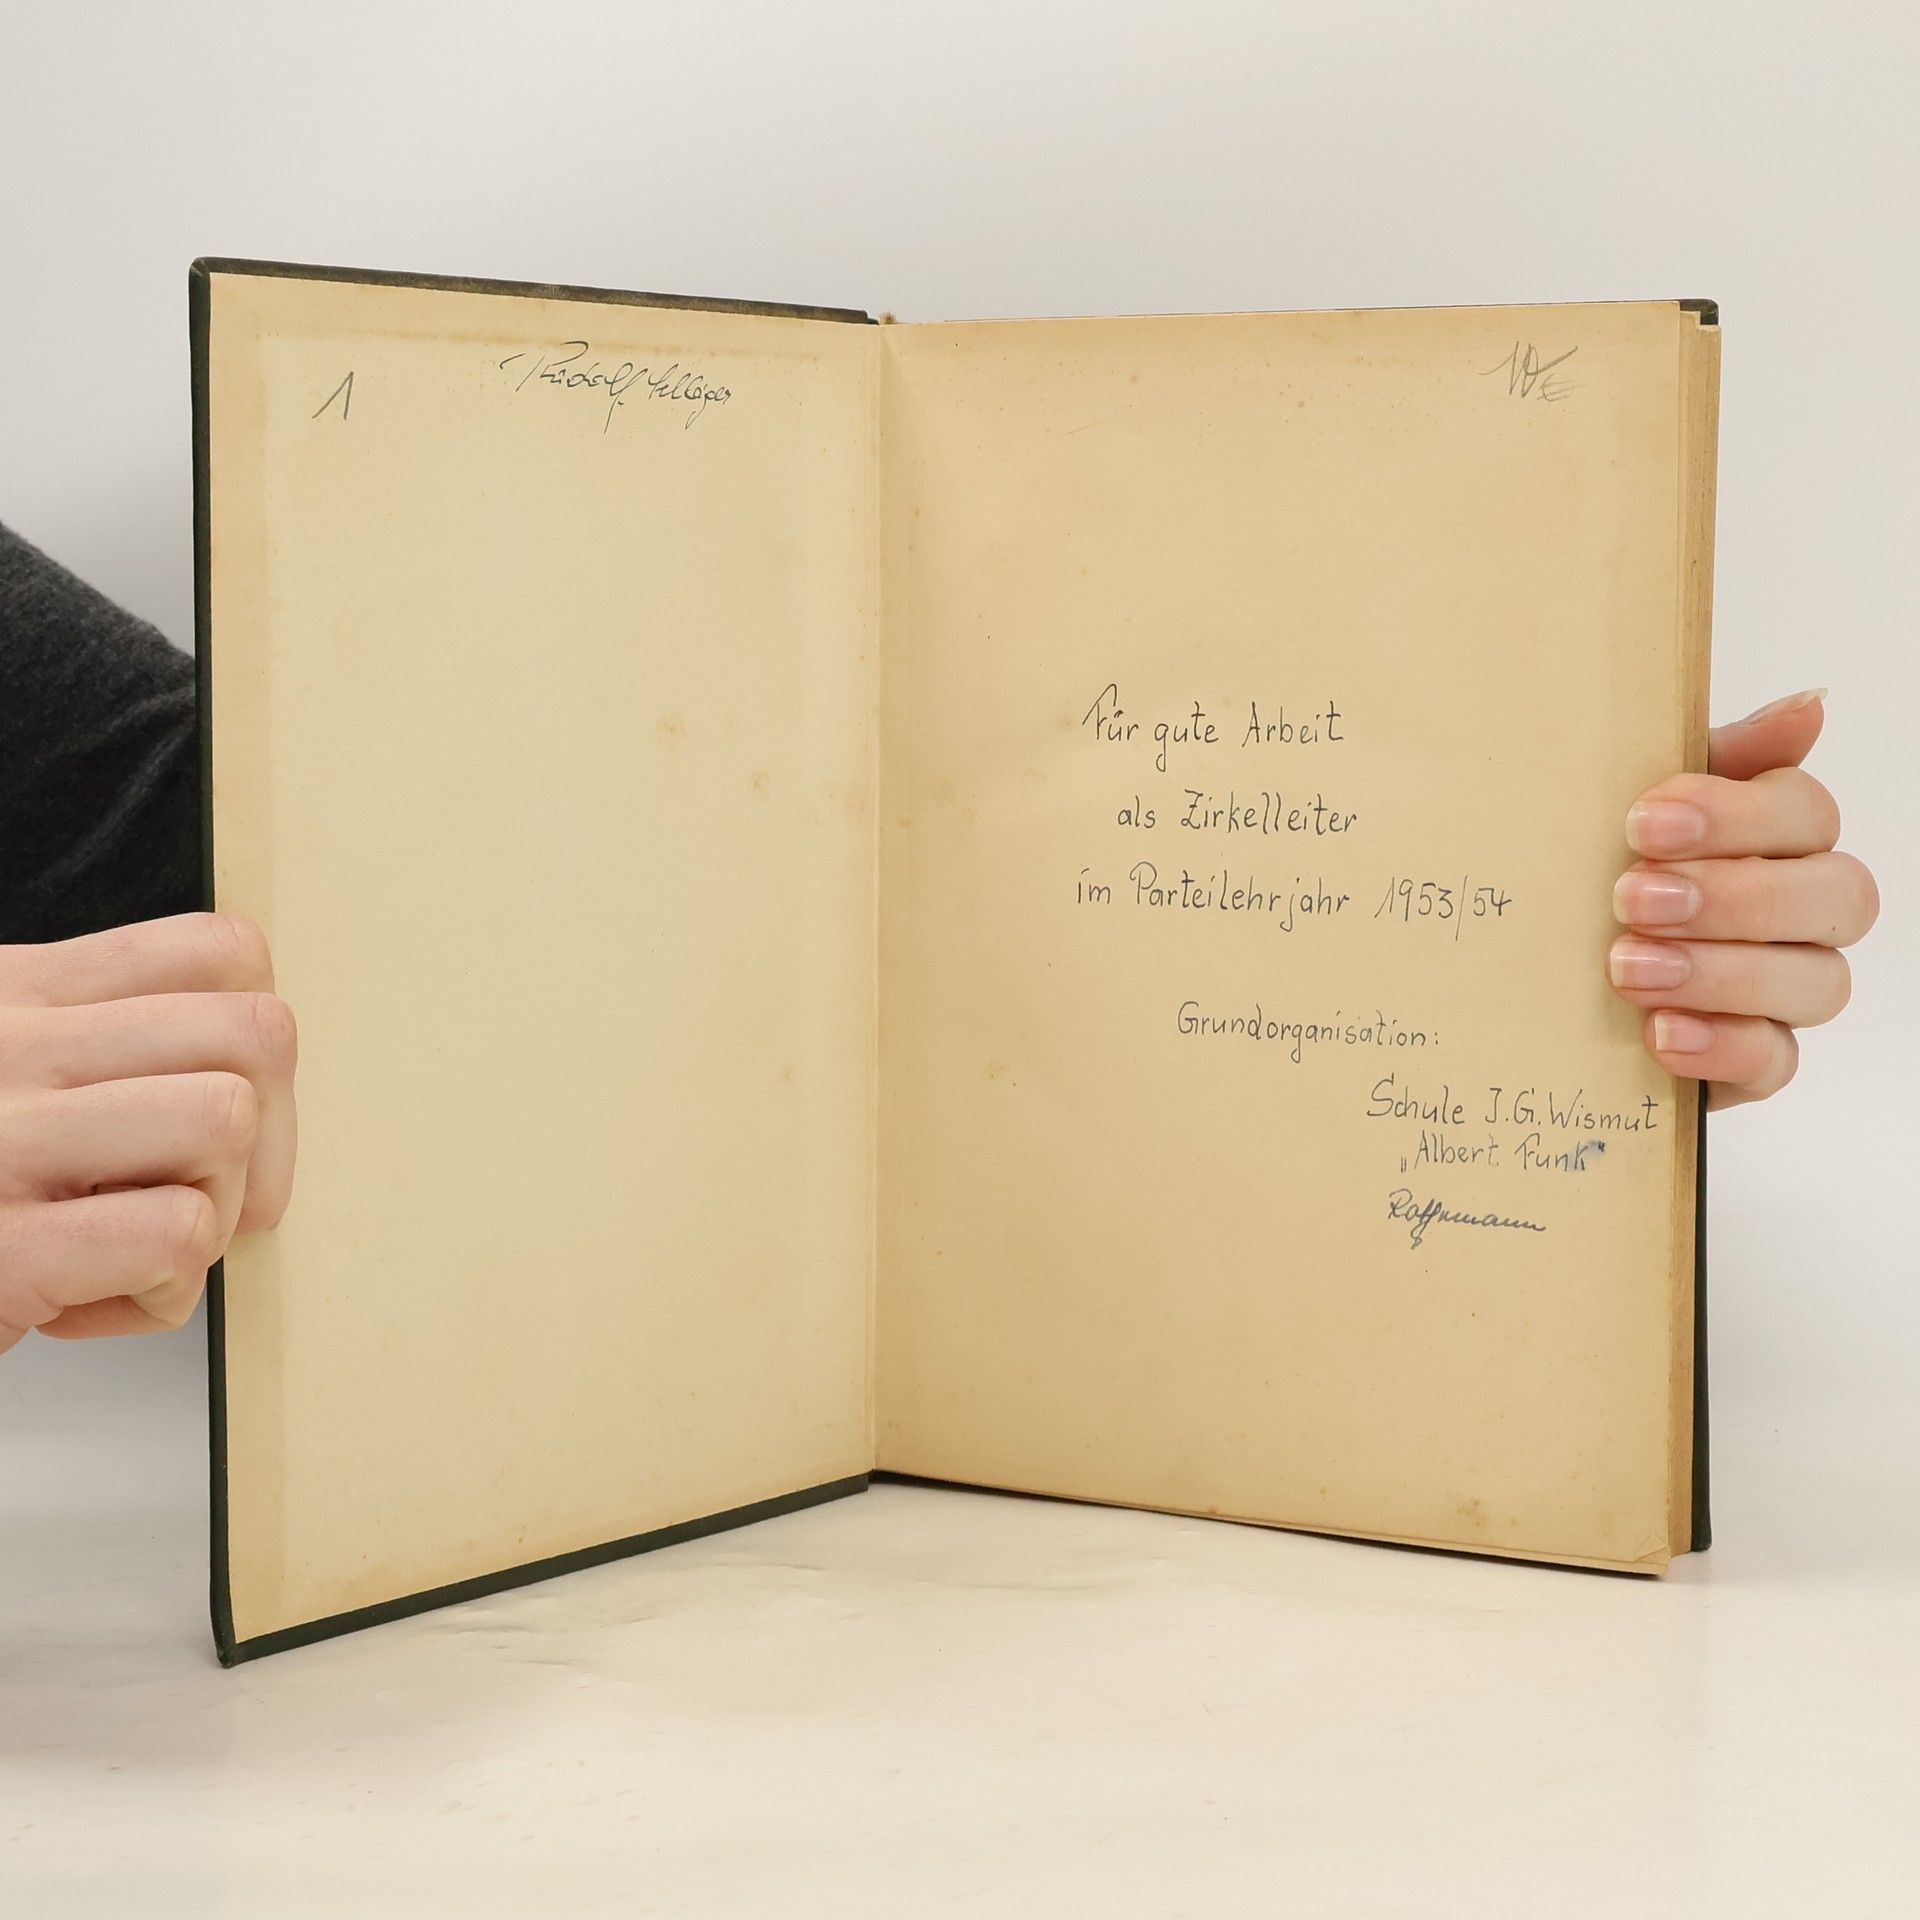 1
Rudolf
Für gute Arbeit
als Zirkelleiter
im Parteilehrjahr 1953/54
Grundorganisation:
Schule I.G. Wismut
„Albert Funk"